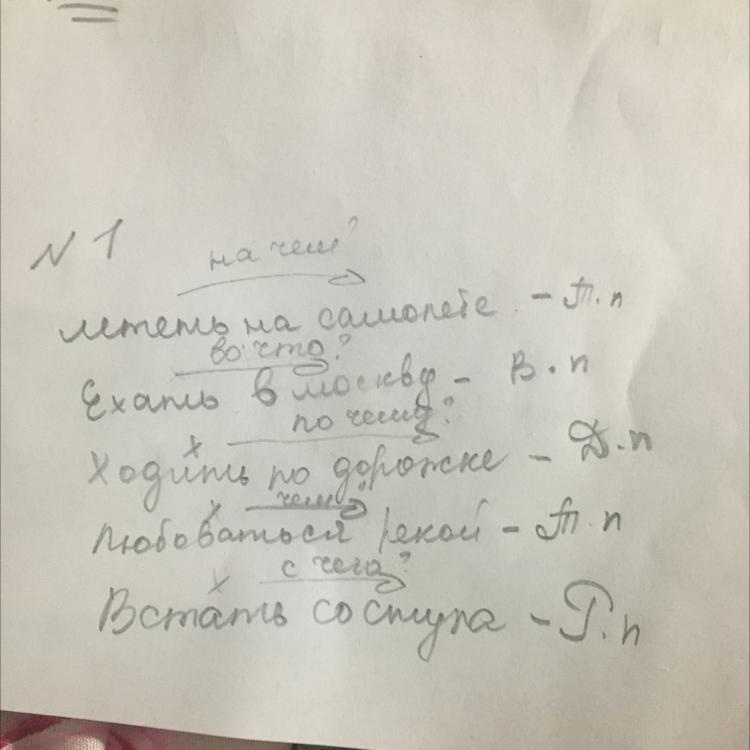 N 1
на чем?
лететь на самолете - Т.п
во что?
Ехать в москву - В.п
по чему?
Ходить по дорожке - Д.п
чем?
любоваться рекой - Т.п
с чего?
Встать со стула - Р.п